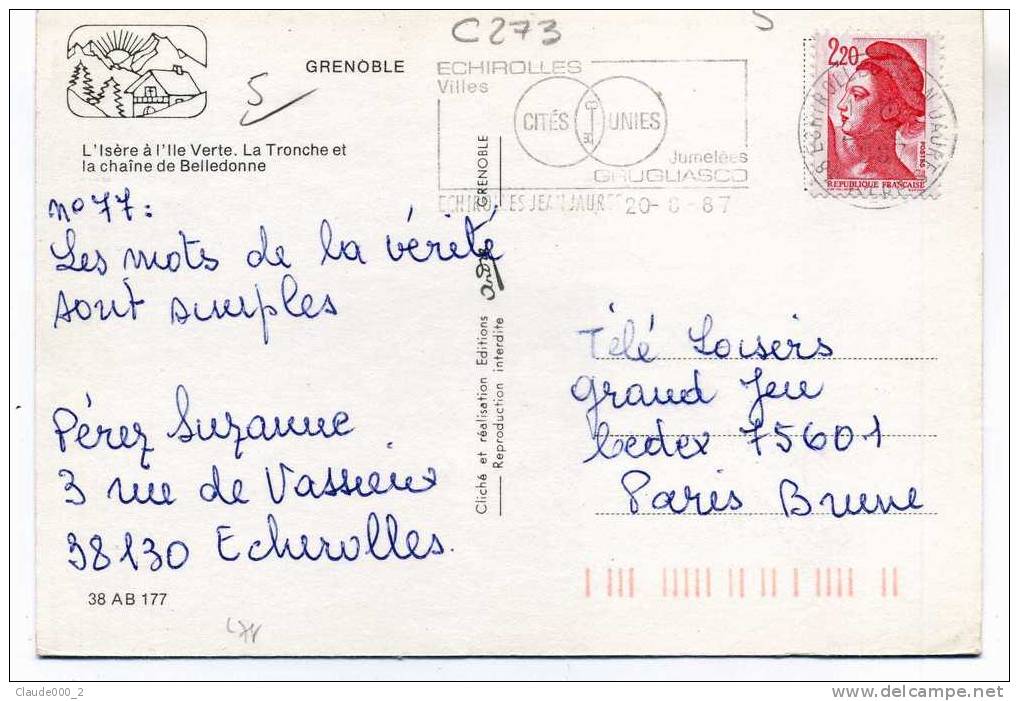 C273
5
5
GRENOBLE
ECHIROLLES
Villes
CITÉS UNIES
Jumelées
GRUGLIASCO
ECHIROLLES JEAN JAURES 20-8-87
2,20
POSTES
REPUBLIQUE FRANÇAISE
L'Isère à l'Ile Verte. La Tronche et
la chaîne de Belledonne
n° 77:
Les mots de la vérité
sont simples
Pérez Suzanne
3 rue de Vassieux
38130 Echirolles.
38 AB 177
Cliché et réalisation Editions André GRENOBLE
Reproduction interdite
Télé Loisirs
Grand Jeu
Cedex 75601
Paris Brune
Claude000_2
www.delcampe.net